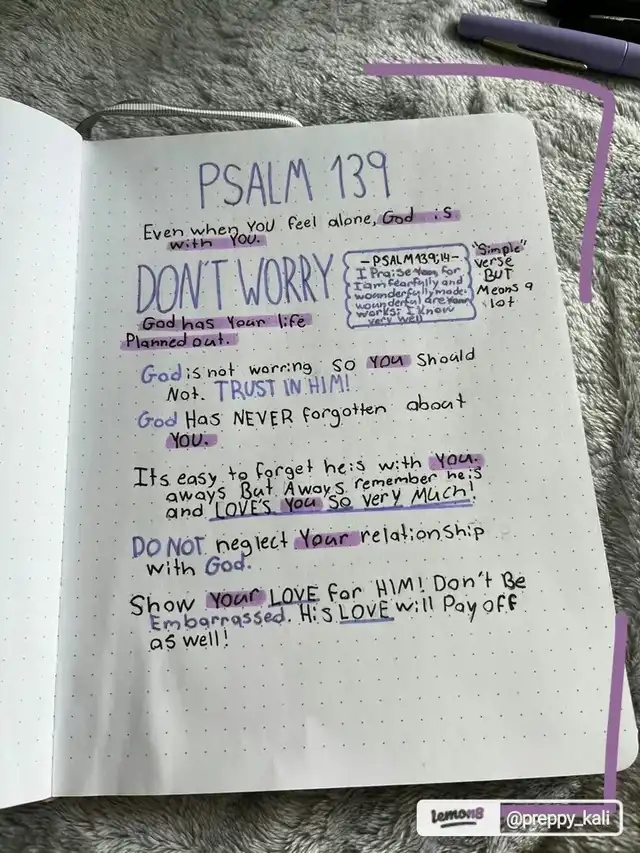 PSALM 139
Even when you feel alone, God is
with you.
DON'T WORRY
God has your life
Planned out.
- PSALM 139:14 -
I Praise you for
I am fearfully and
wounderfully made.
wounderful are your
works; I know
very well
"Simple"
verse
BUT
Means a
lot
God is not worring so you should
Not. TRUST IN HIM!
God Has NEVER forgotten about
YOU.
Its easy to forget he is with you.
aways But Aways remember he is
and LOVE'S YOU So very Much!
DO NOT neglect Your relationship
with God.
Show Your LOVE for HIM! Don't Be
Embarrassed. His LOVE will Pay off
as well!
lemon8 @preppy_kali